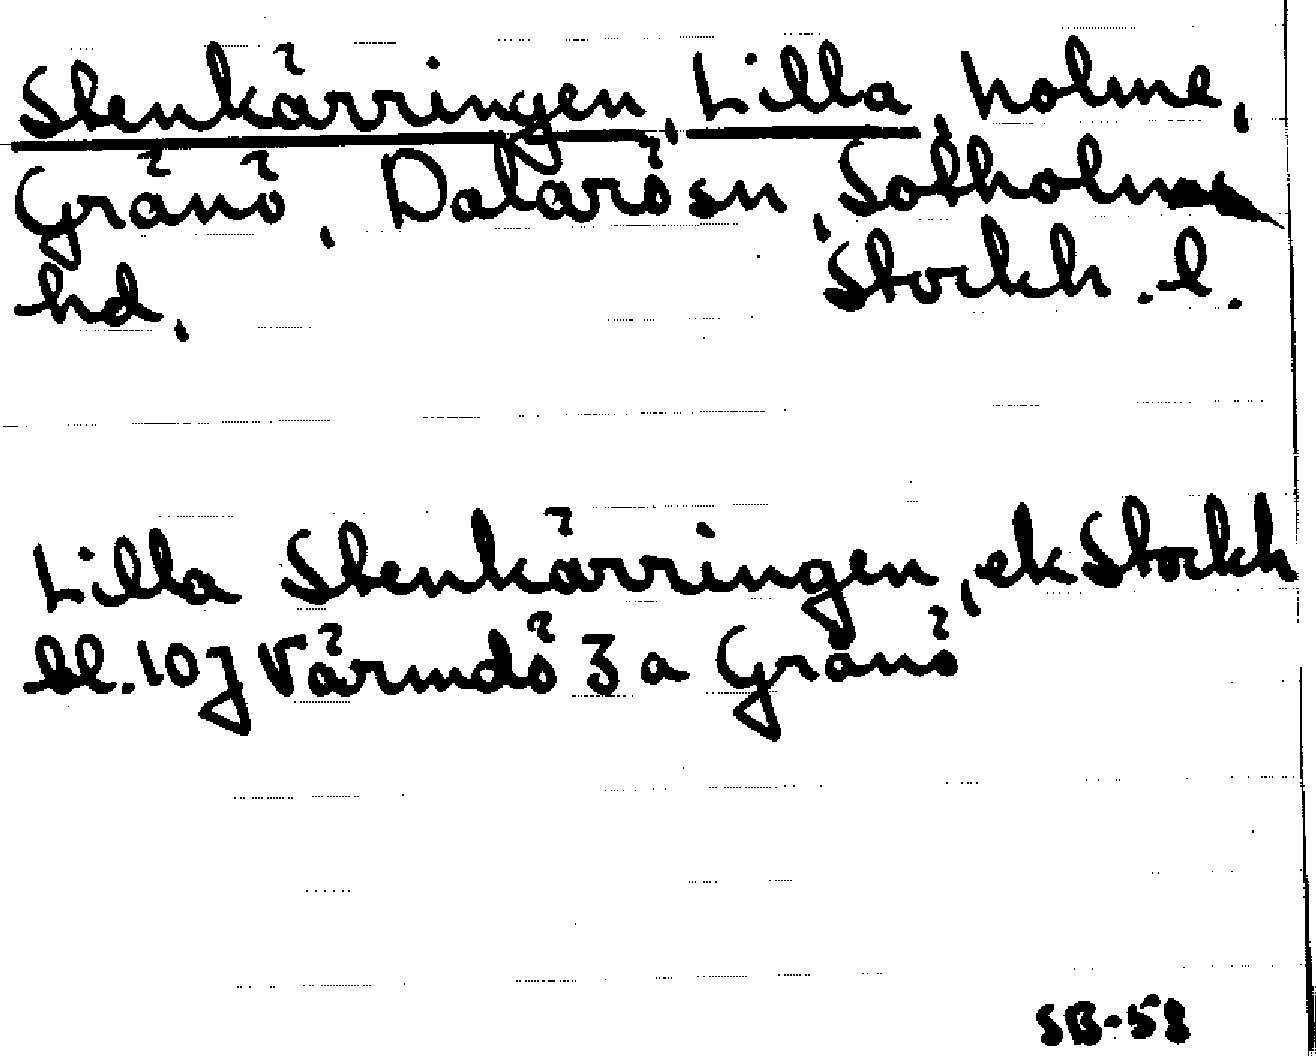 Stenkärringen, Lilla, holme,
Gränö, Dalarö sn, Sotholms
hd, Stockh. l.
Lilla Stenkärringen, ek Stockh
bl. 10 J Värmdö 3 a Gränö
SB-58